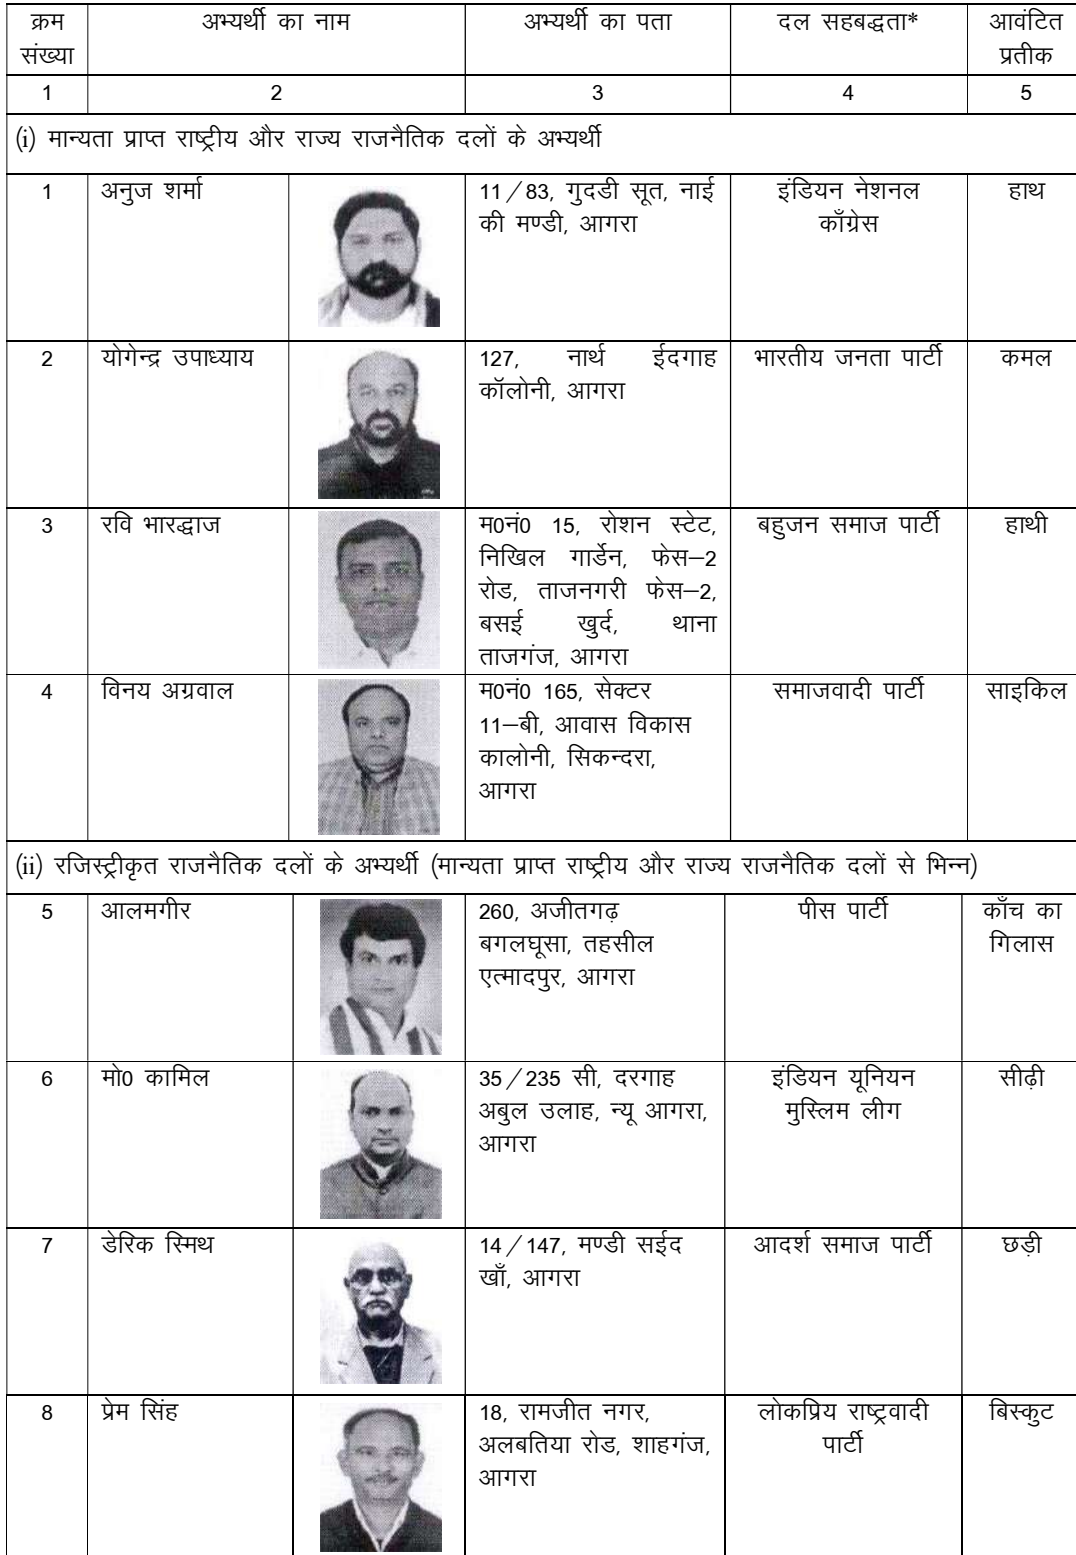 क्रम संख्या
अभ्यर्थी का नाम
अभ्यर्थी का पता
दल सहबद्धता*
आवंटित प्रतीक
1 2 3 4 5
(i) मान्यता प्राप्त राष्ट्रीय और राज्य राजनैतिक दलों के अभ्यर्थी
1
अनुज शर्मा
11/83, गुदडी सूत, नाई
की मण्डी, आगरा
इंडियन नेशनल
काँग्रेस
हाथ
2
योगेन्द्र उपाध्याय
127, नार्थ ईदगाह
कॉलोनी, आगरा
भारतीय जनता पार्टी
कमल
3
रवि भारद्धाज
म0नं0 15, रोशन स्टेट,
निखिल गार्डेन, फेस–2
रोड, ताजनगरी फेस–2,
बसई खुर्द, थाना
ताजगंज, आगरा
बहुजन समाज पार्टी
हाथी
4
विनय अग्रवाल
म0नं0 165, सेक्टर
11–बी, आवास विकास
कालोनी, सिकन्दरा,
आगरा
समाजवादी पार्टी
साइकिल
(ii) रजिस्ट्रीकृत राजनैतिक दलों के अभ्यर्थी (मान्यता प्राप्त राष्ट्रीय और राज्य राजनैतिक दलों से भिन्न)
5
आलमगीर
260, अजीतगढ़
बगलघूसा, तहसील
एत्मादपुर, आगरा
पीस पार्टी
काँच का
गिलास
6
मो0 कामिल
35/235 सी, दरगाह
अबुल उलाह, न्यू आगरा,
आगरा
इंडियन यूनियन
मुस्लिम लीग
सीढ़ी
7
डेरिक स्मिथ
14/147, मण्डी सईद
खाँ, आगरा
आदर्श समाज पार्टी
छड़ी
8
प्रेम सिंह
18, रामजीत नगर,
अलबतिया रोड, शाहगंज,
आगरा
लोकप्रिय राष्ट्रवादी
पार्टी
बिस्कुट